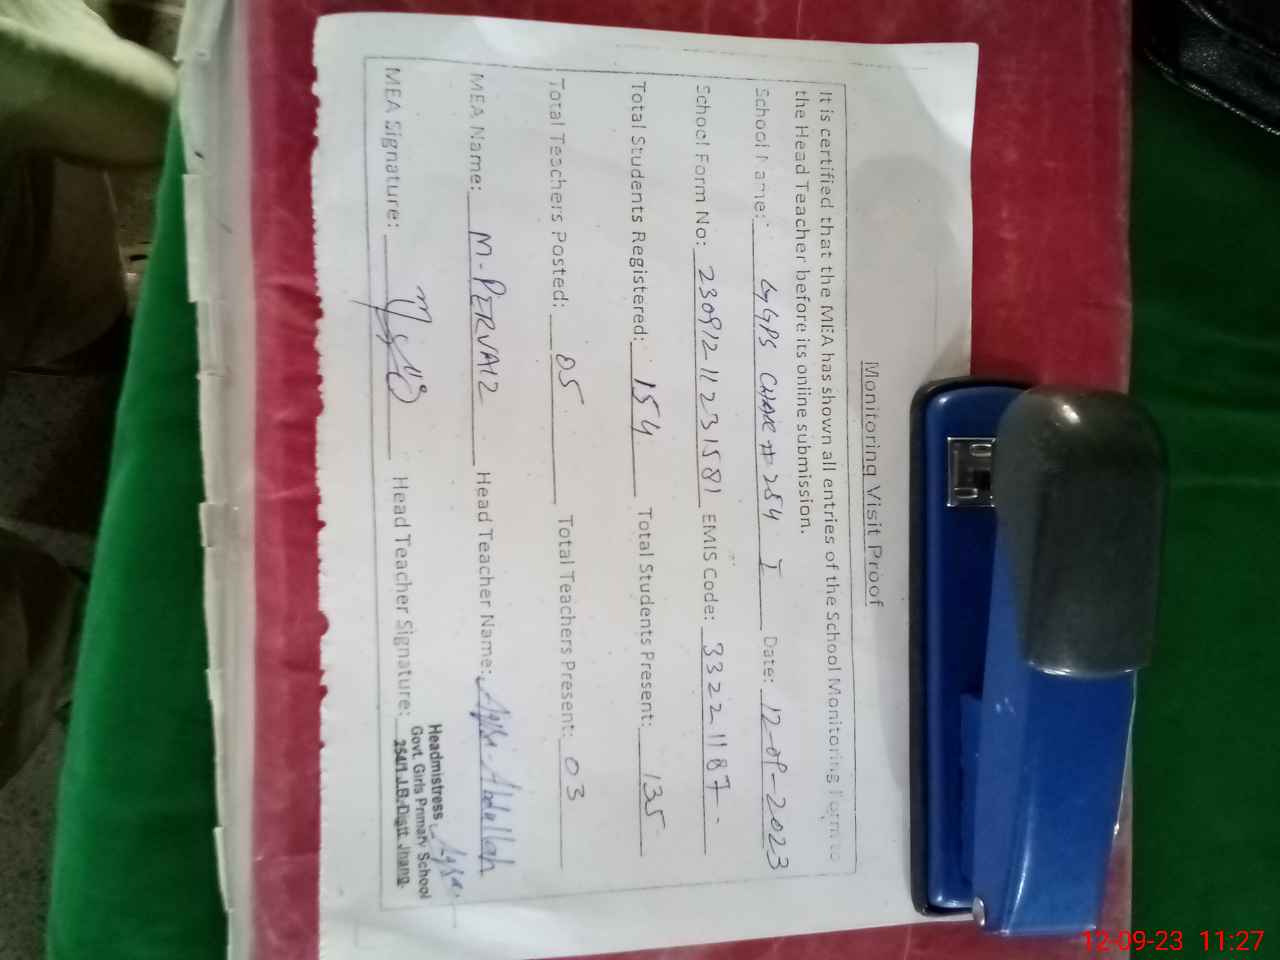 Monitoring Visit Proof
It is certified that the MEA has shown all entries of the School Monitoring Form to
the Head Teacher before its online submission.
School Name: GGPS CHAK # 254 I Date: 12-09-2023
School Form No: 23091211231581 EMIS Code: 33221187
Total Students Registered: 154 Total Students Present: 135
Total Teachers Posted: 05 Total Teachers Present: 03
MEA Name: M-PERVAIZ Head Teacher Name: Aqsa-Abdullah
MEA Signature: Head Teacher Signature: Aqsa
Headmistress
Govt. Girls Primary School
254/1 J.B. Distt. Jhang.
12-09-23 11:27